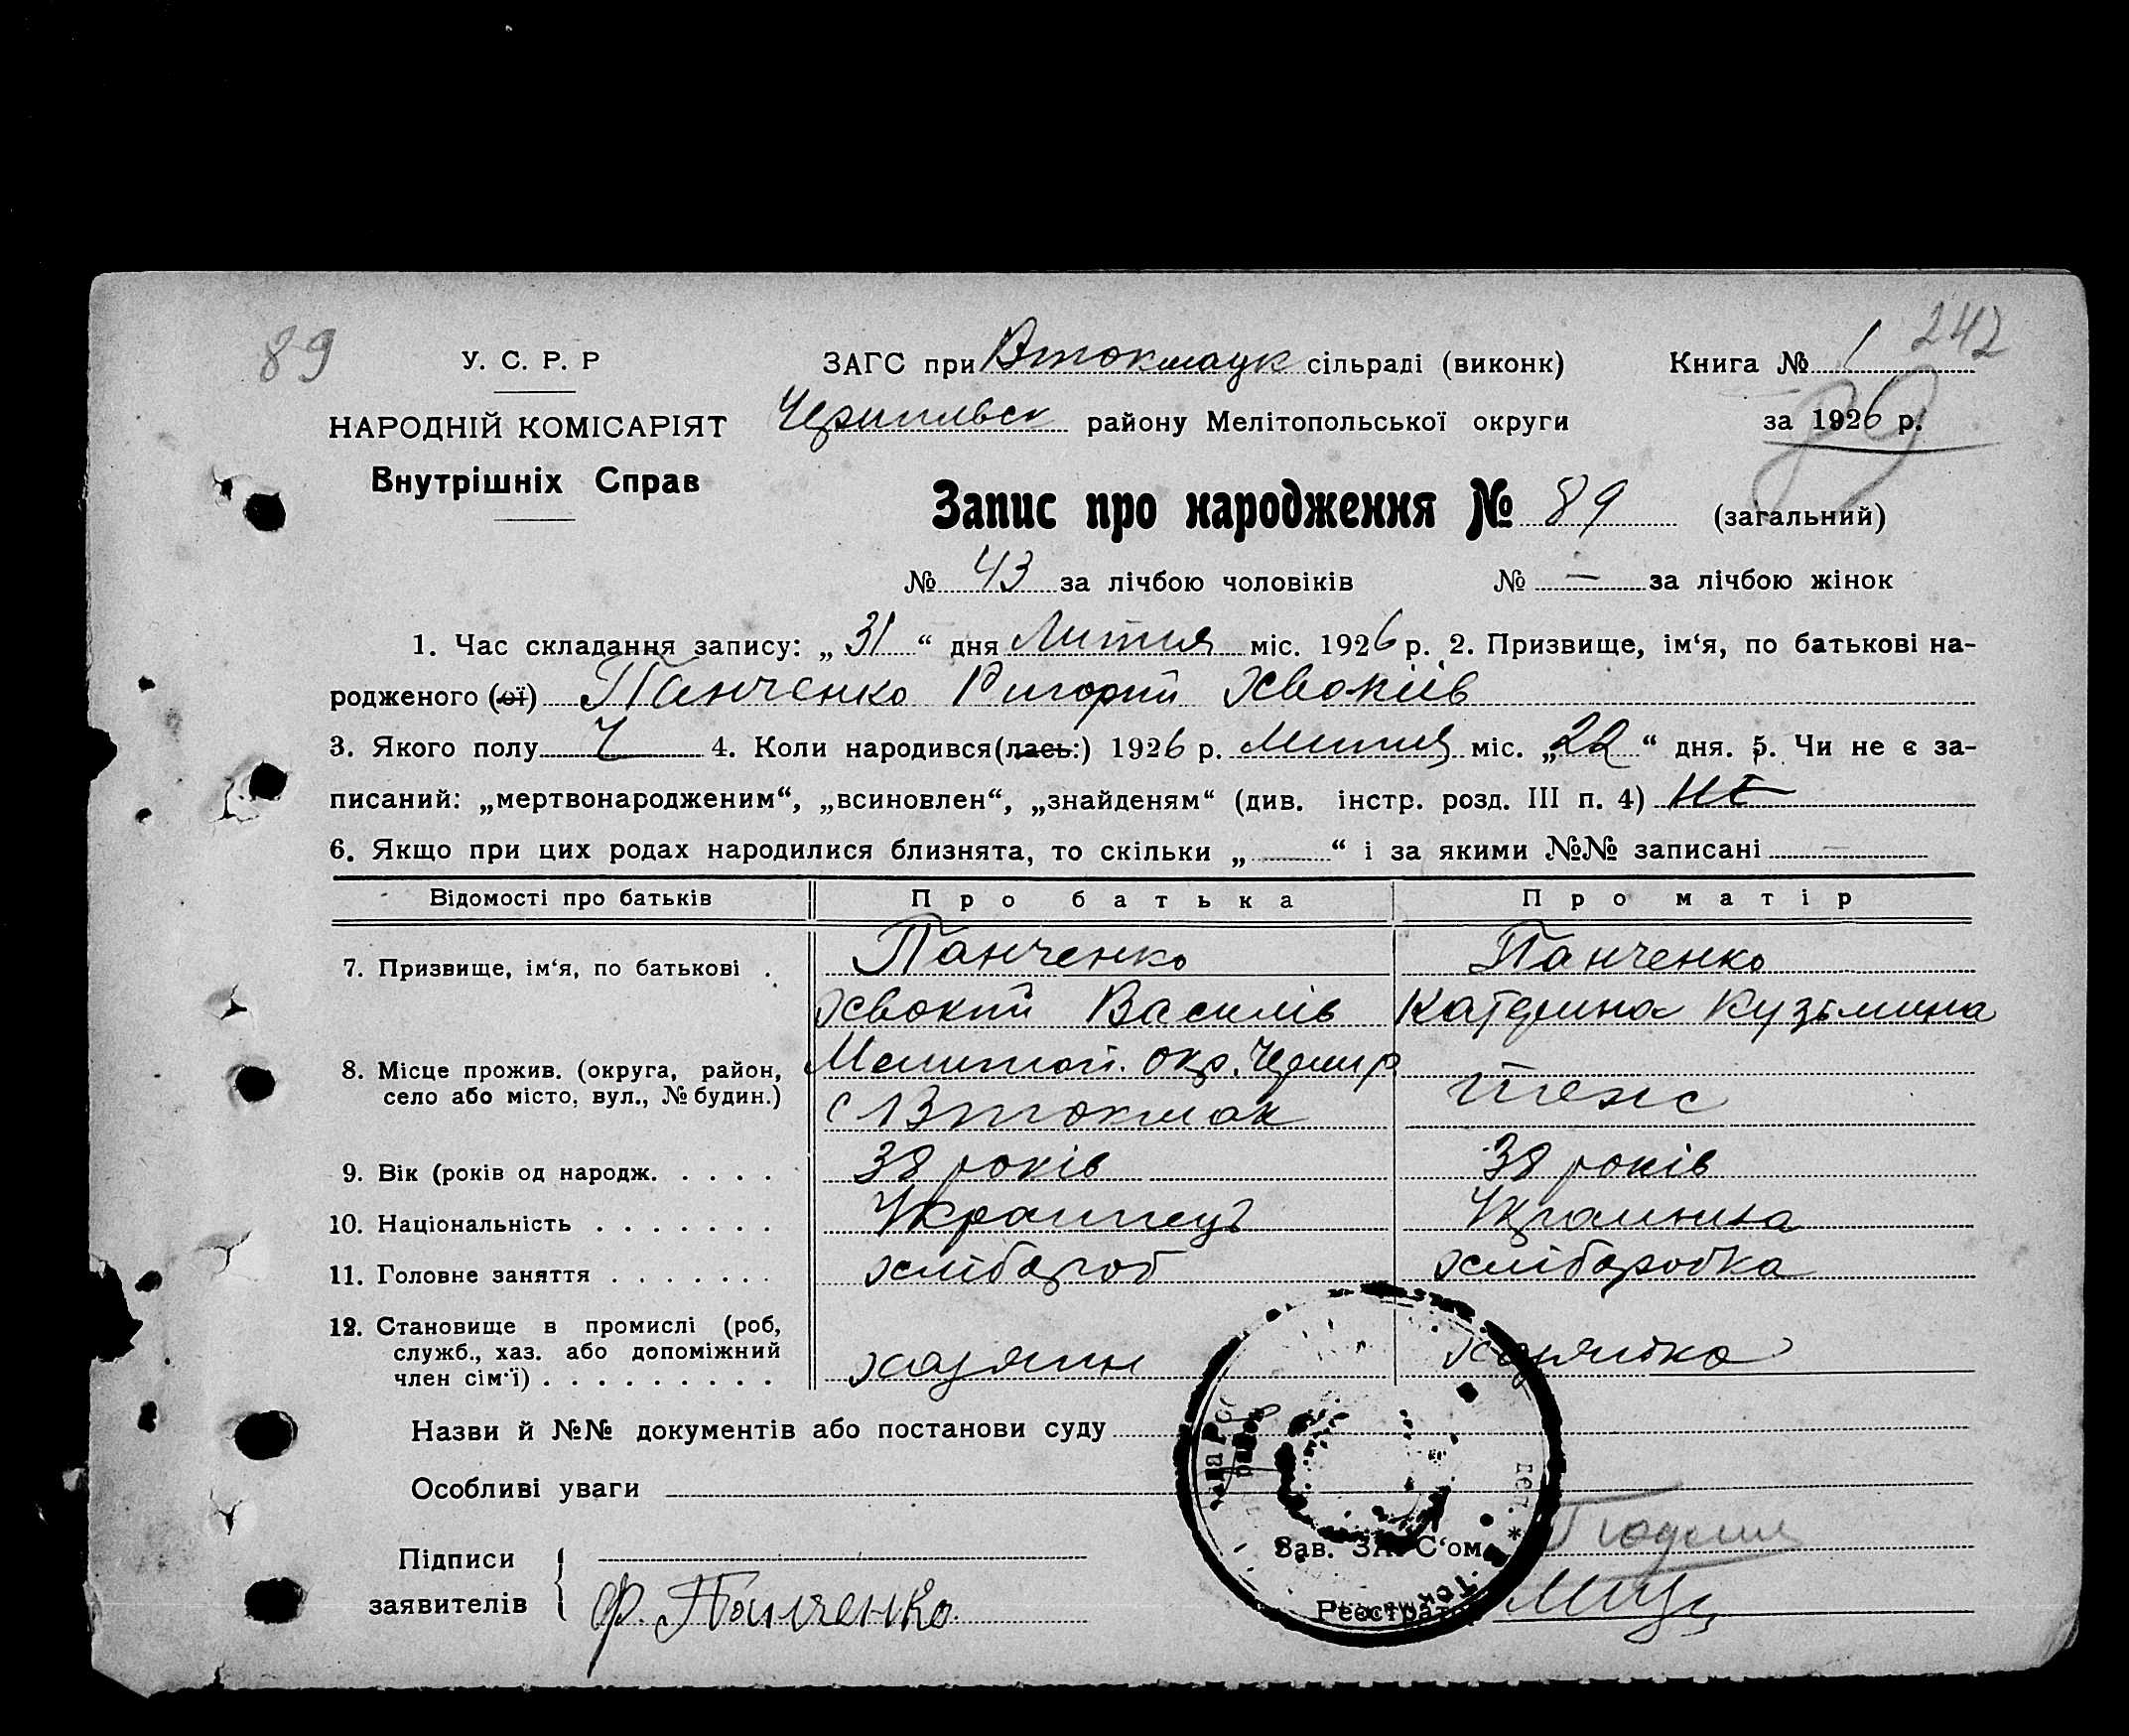 89
242
У. С. Р. Р
ЗАГС при Втокмацк сільраді (виконк)
Книга № 1
НАРОДНІЙ КОМІСАРІЯТ
району Мелітопольської округи
за 1926 р.
89
Внутрішніх Справ
Запис про народження № 89 (загальний)
№ 43 за лічбою чоловіків № — за лічбою жінок
1. Час складання запису: „ 31 “ дня Липия міс. 1926 р. 2. Призвище, ім‘я, по батькові на-
родженого (ої) Панченко Григорий Хвокиїв
3. Якого полу Ч 4. Коли народився(лась:) 1926 р. Липия міс. „ 22 “ дня. 5. Чи не є за-
писаний: „мертвонародженим“, „всиновлен“, „знайденям“ (див. інстр. розд. III п. 4) не
6. Якщо при цих родах народилися близнята, то скільки „ “ і за якими №№ записані —
Відомості про батьків
Про батька
Про матір
7. Призвище, ім‘я, по батькові .
Панченко
Панченко
Хвокий Василів
Катерина Кузьмина
8. Місце прожив. (округа, район,
село або місто, вул., № будин.)
Мелитоп. окр. Чериг р
с Втокмак
теже
9. Вік (років од народж. . . . .
38 років
38 років
10. Національність . . . . . . .
Украинець
Украинка
11. Головне заняття . . . . . . .
хлібороб
хліборобка
12. Становище в промислі (роб,
служб., хаз. або допоміжний
член сім‘ї) . . . . . . . . .
хазяин
хазяйка
Назви й №№ документів або постанови суду
Особливі уваги
Підписи
заявителів
Ф. Панченко.
Зав. ЗАГС‘ом
Реєстратор